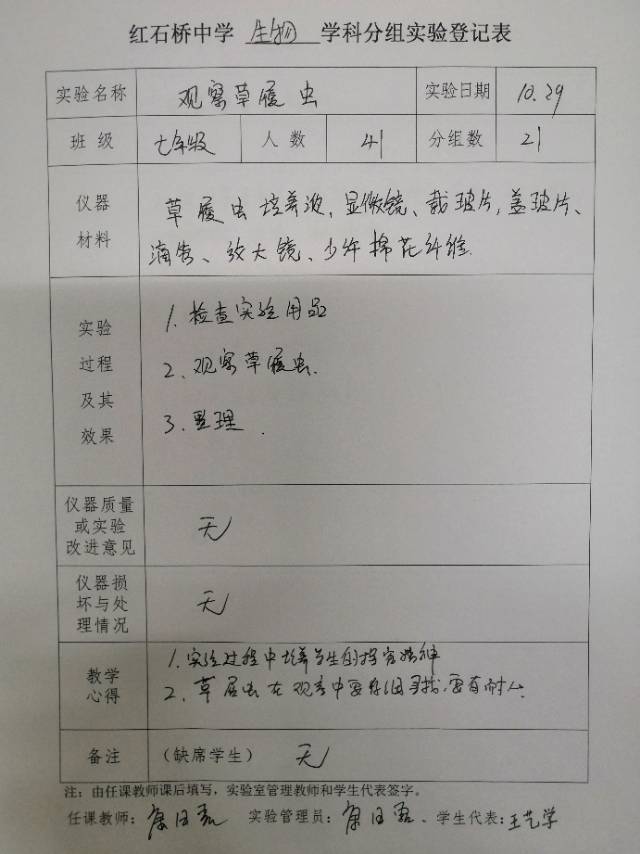 红石桥中学 生物 学科分组实验登记表
实验名称 观察草履虫 实验日期 10.29
班级 七年级 人数 41 分组数 21
仪器材料 草履虫培养液、显微镜、载玻片、盖玻片、
滴管、放大镜、少许棉花纤维.
实验过程及其效果
1. 检查实验用品
2. 观察草履虫.
3. 整理.
仪器质量或实验改进意见 无
仪器损坏与处理情况 无
教学心得
1. 实验过程中培养学生的探究精神
2. 草履虫在观察中要仔细寻找,要有耐心.
备注 (缺席学生) 无
注:由任课教师课后填写,实验室管理教师和学生代表签字。
任课教师: 实验管理员: 学生代表:王艺学